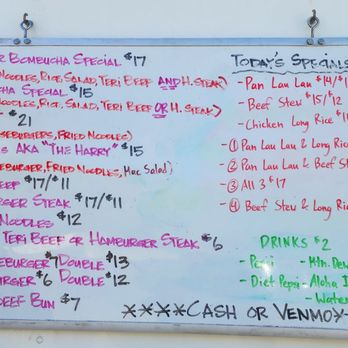 R BOMBUCHA SPECIAL $17
NOODLES, RICE, SALAD, TERI BEEF AND H. STEAK)
CHA SPECIAL $15
NOODLES, RICE, SALAD, TERI BEEF OR H. STEAK)
- $21
SEBURGERS, FRIED NOODLES)
S AKA "THE HARRY" $15
SEBURGER, FRIED NOODLES, Mac Salad)
BEEF $17/$11
RGER STEAK $17/$11
NOODLES $12
TERI BEEF OR HAMBURGER STEAK $6
EBURGER $7 DOUBLE $13
BURGER $6 DOUBLE $12
BEEF BUN $7
TODAY'S SPECIALS
- PAN LAU LAU $14/
- BEEF STEW $15/$12
- CHICKEN LONG RICE
① PAN LAU LAU & LONG RI
② PAN LAU LAU & BEEF ST
③ ALL 3 $17
④ BEEF STEW & LONG RIC
DRINKS $2
- Pepsi - Mtn. Dew
- Diet Pepsi - Aloha I
- Water
****CASH OR VENMO